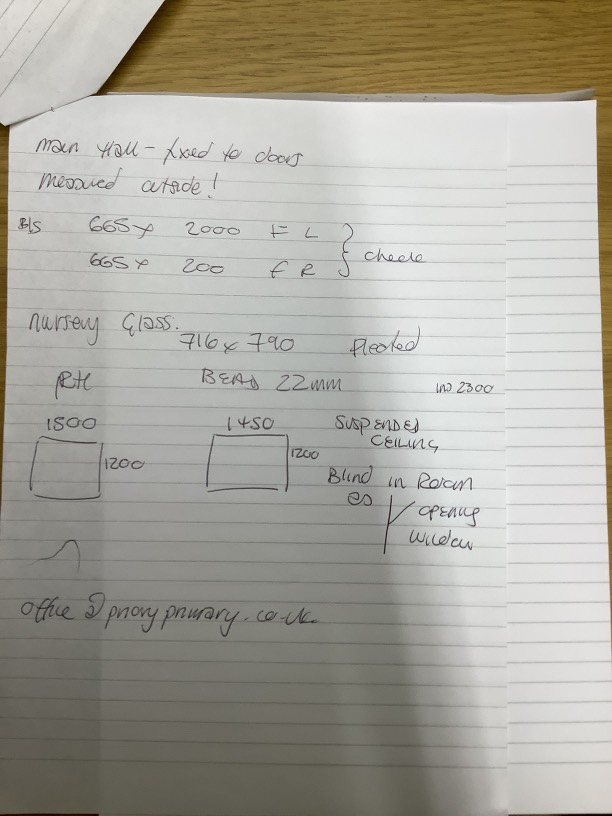 Main Hall - fixed to doors
measured outside!
B/S 665 x 2000 F L } check
665 x 200 F R
Nursery Glass.
716 x 790 Pleated
RH BEAD 22mm 2300
1500
1200
1450
1200
SUSPENDED
CEILING
Blind in Room
opening
window
office@prioryprimary.co.uk